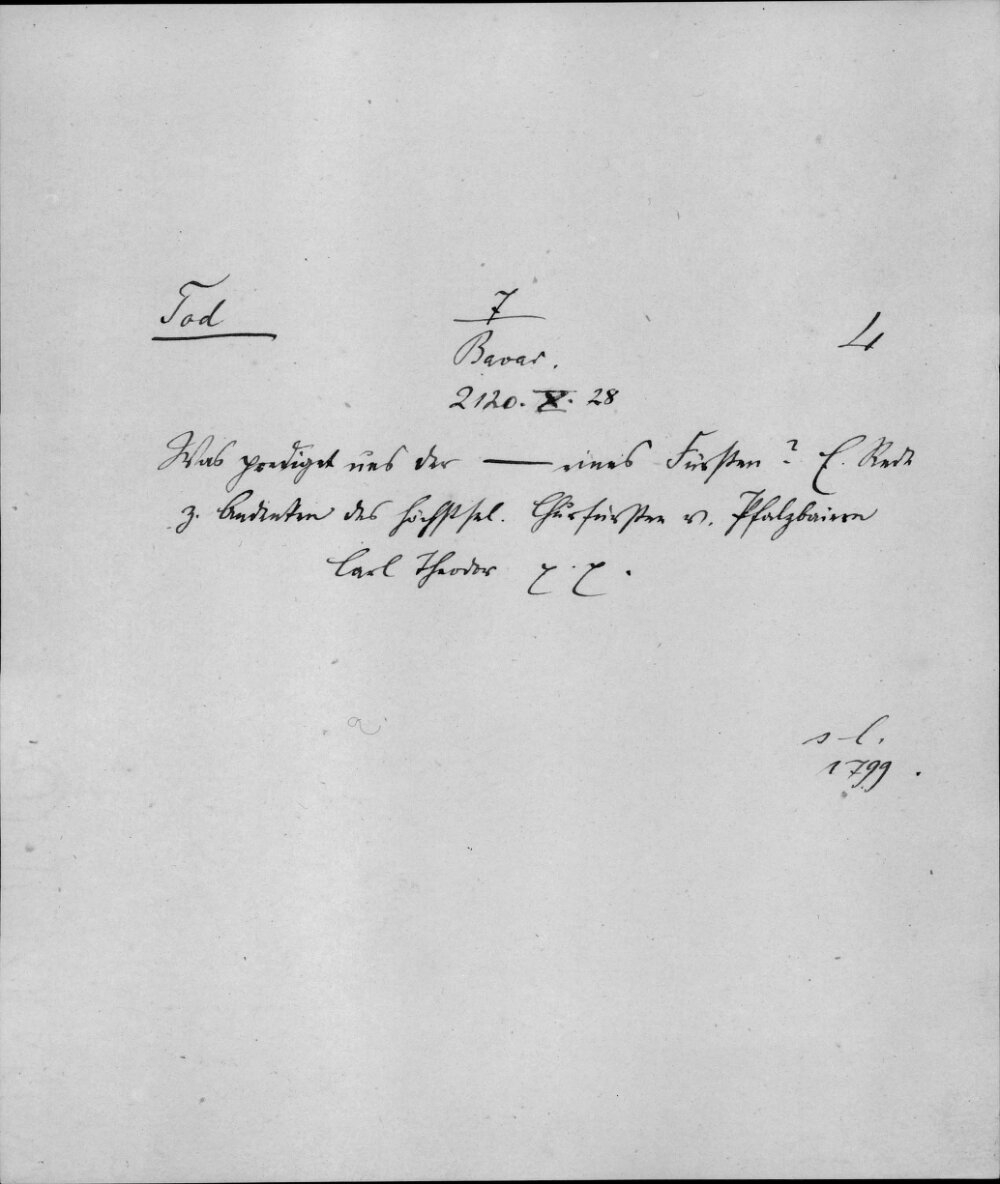 Tod
7
4
Bavar.
2120. X. 28
Was prediget uns der — eines Fürsten? E. Rede
z. Andenken des höchstsel. Churfürsten v. Pfalzbaiern
Carl Theodor
s. l.
1799.